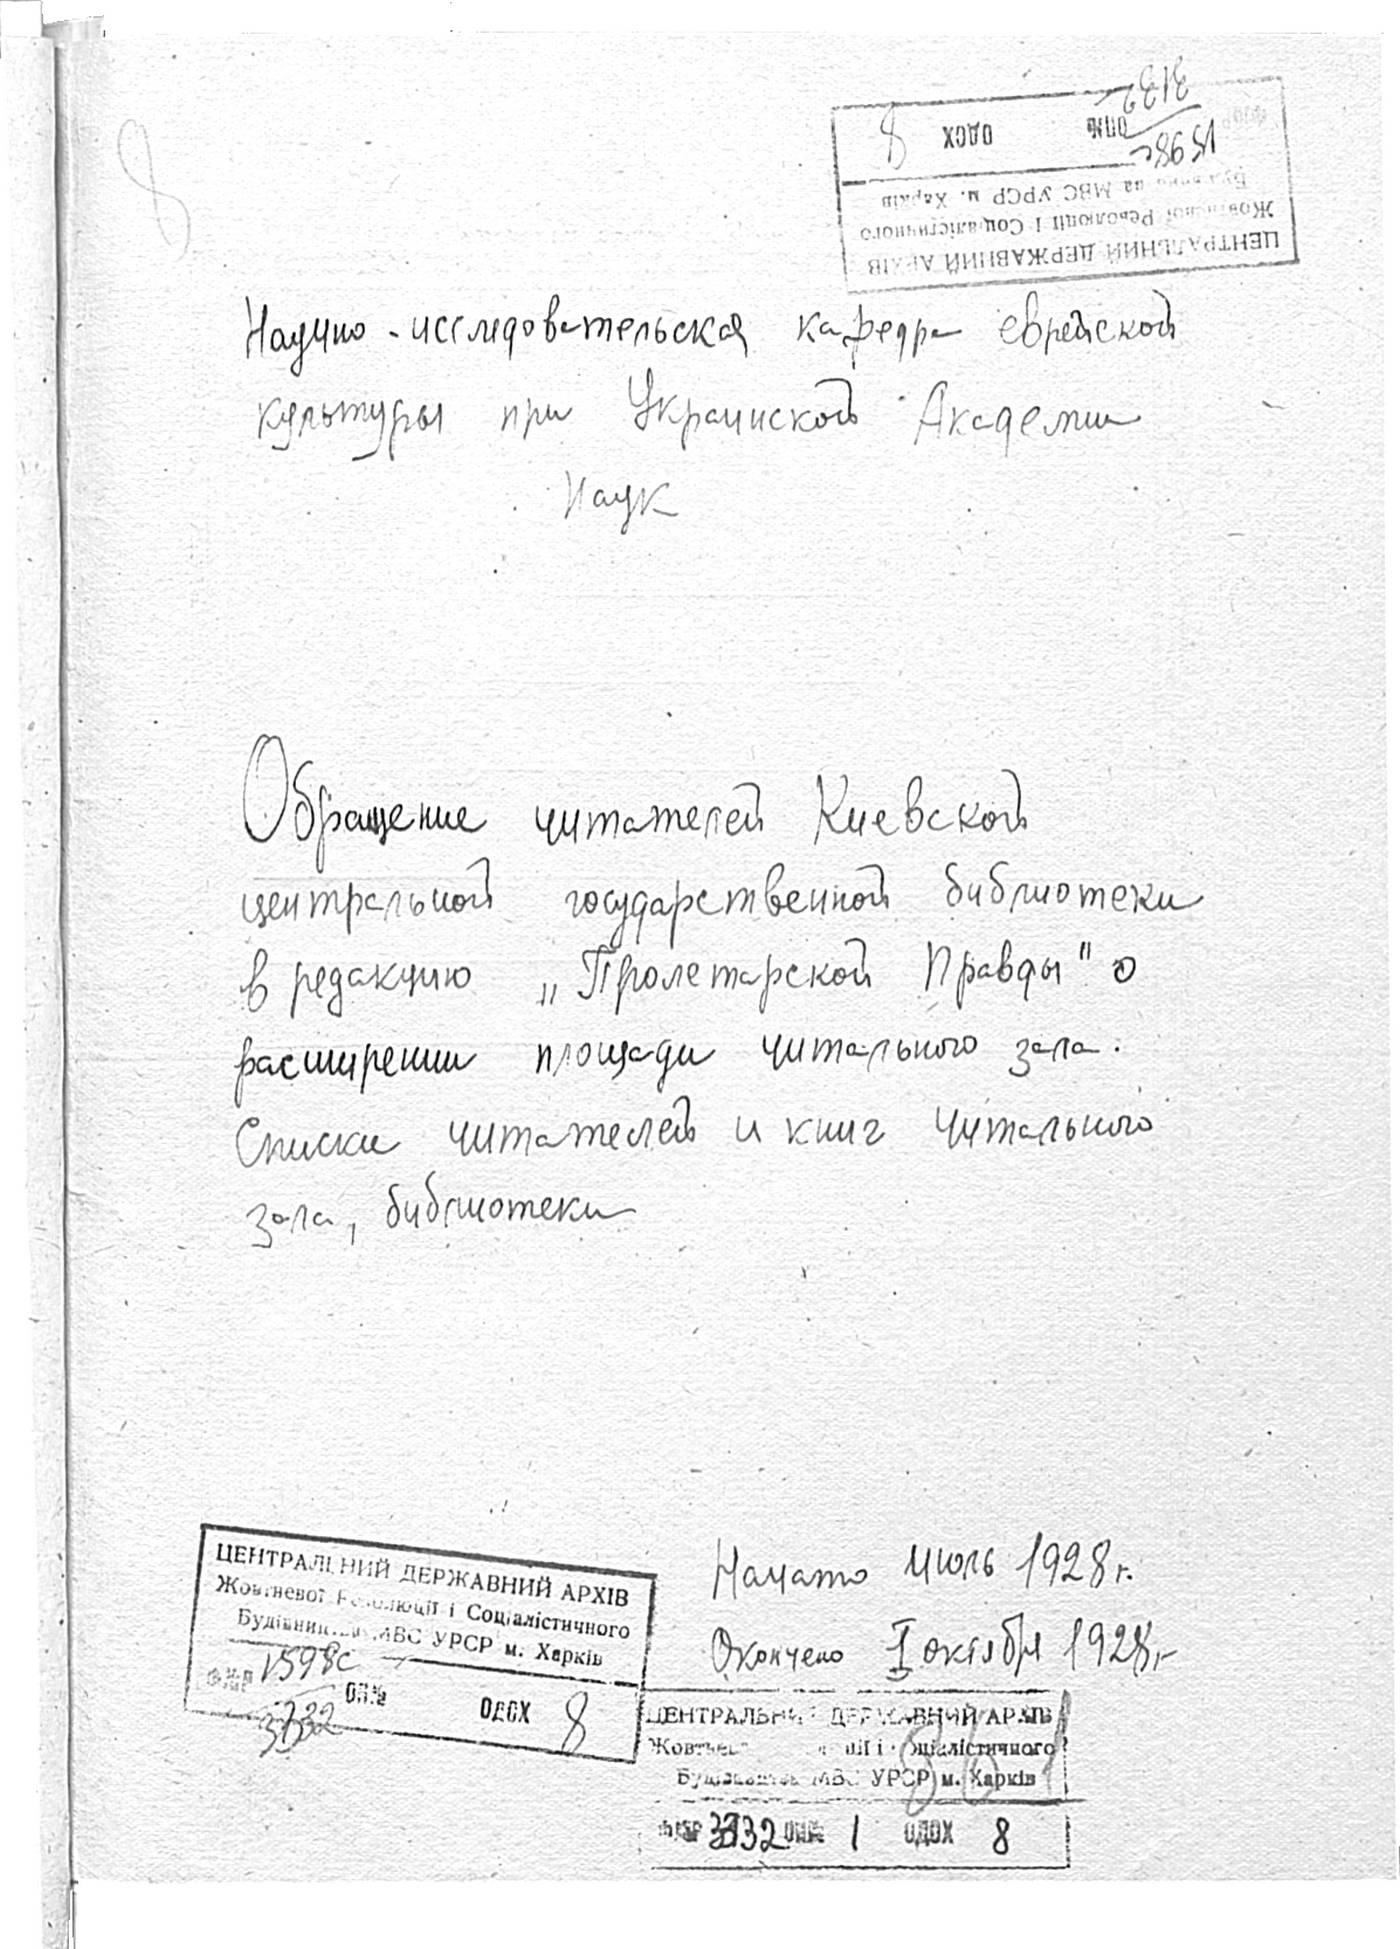 8
ЦЕНТРАЛЬНИЙ ДЕРЖАВНИЙ АРХІВ
Жовтневої Революції і Соціалістичного
Будівництва МВС УРСР м. Харків
1598с
3132 ОП№ ОДОХ 8
Научно-исследовательская кафедра еврейской
культуры при Украинской Академии
Наук
Обращение читателей Киевской
центральной государственной библиотеки
в редакцию „Пролетарской Правды" о
расширении площади читального зала.
Списки читателей и книг читального
зала, библиотеки
Начато июль 1928 г.
Окончено I октября 1928 г.
ЦЕНТРАЛЬНИЙ ДЕРЖАВНИЙ АРХІВ
Жовтневої Революції і Соціалістичного
Будівництва МВС УРСР м. Харків
ФОНД 1598с
ОП№ ОДОХ 8
ЦЕНТРАЛЬНИЙ ДЕРЖАВНИЙ АРХІВ
Жовтневої Революції і Соціалістичного
Будівництва МВС УРСР м. Харків
ОП№ 1 ОДОХ 8